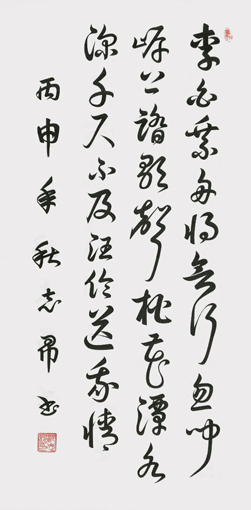 李白乘舟將欲行忽聞
岸上踏歌聲桃花潭水
深千尺不及汪倫送我情
丙申年秋志書